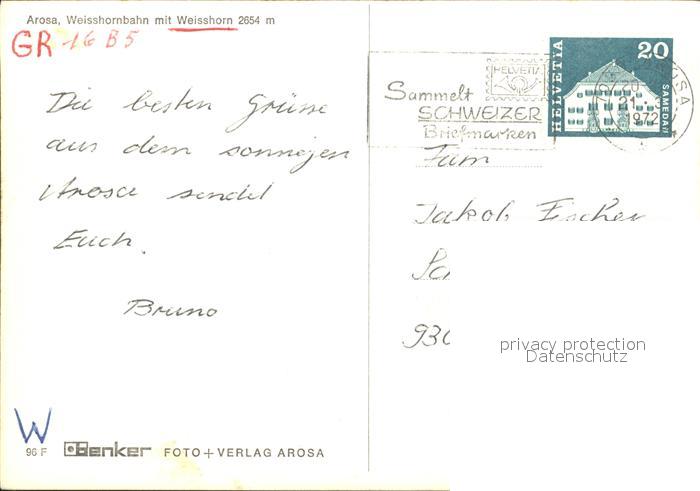 Arosa, Weisshornbahn mit Weisshorn 2654 m
GR 16 B5
Die besten Grüsse
aus dem sonnigen
Arosa sendet
Euch.
Bruno
W
96 F Benker FOTO+VERLAG AROSA
HELVETIA
Sammelt
SCHWEIZER
Briefmarken
HELVETIA
20
SAMEDAN
21.
1972
Fam
Jakob Fischer
930
privacy protection
Datenschutz